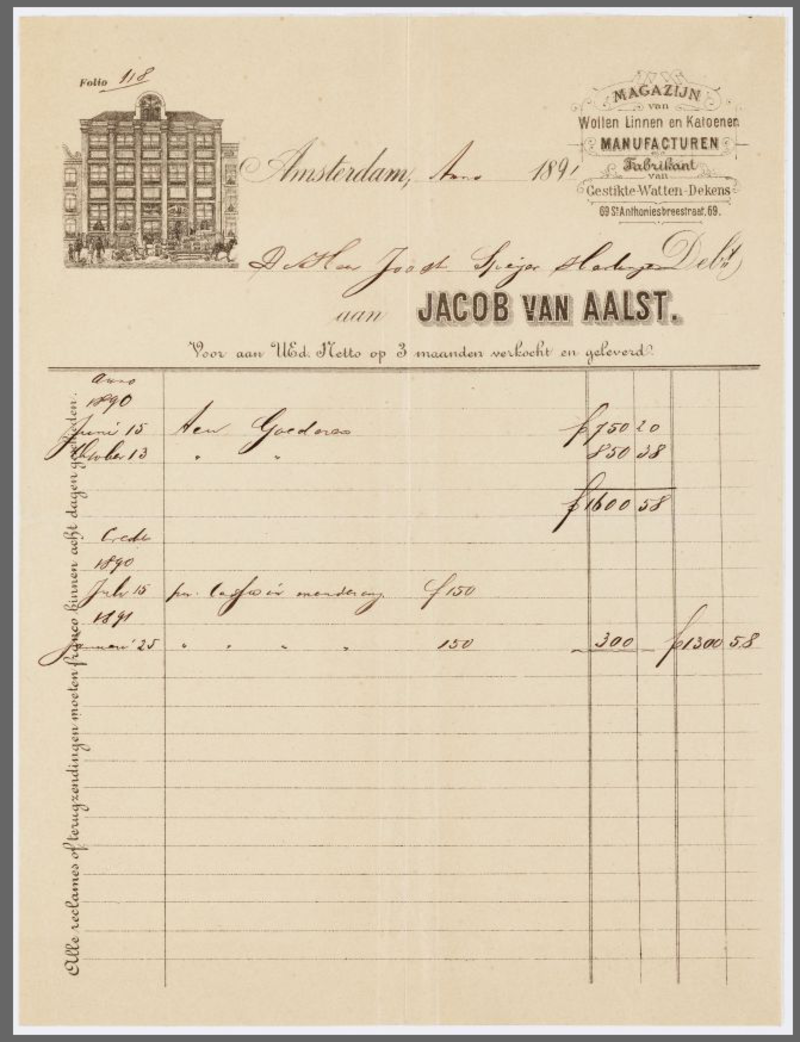 Folio 118
MAGAZIJN
van
Wollen Linnen en Katoenen
MANUFACTUREN
Fabrikant
van
Gestikte-Watten-Dekens
69 St Anthoniesbreestraat. 69.
Amsterdam, Anno 1891
De Heer Joost Speijer Harlingen Debt
aan JACOB VAN AALST.
Voor aan UEd. Netto op 3 maanden verkocht en geleverd.
Anno
1890
Juni 15 Aan Goederen f 750 20
October 13 " " 850 38
f 1600 58
Credit
1890
Juli 15 per Cassa in mindering f 150
1891
Januari 25 " " " " 150 300 f 1300 58
Alle reclames of terugzendingen moeten franco binnen acht dagen geschieden.